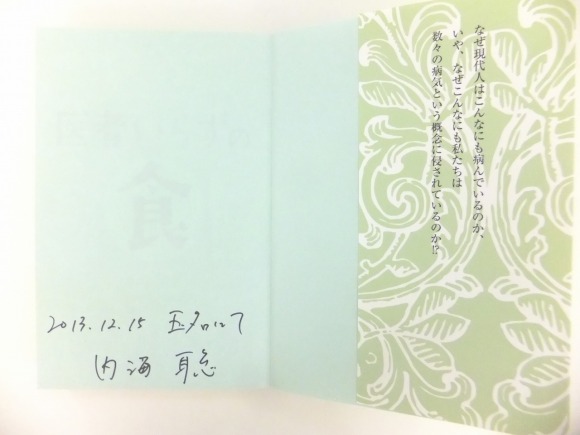 なぜ現代人はこんなにも病んでいるのか、
いや、なぜこんなにも私たちは
数々の病気という概念に侵されているのか!?
2013.12.15 玉名にて
内海 聡